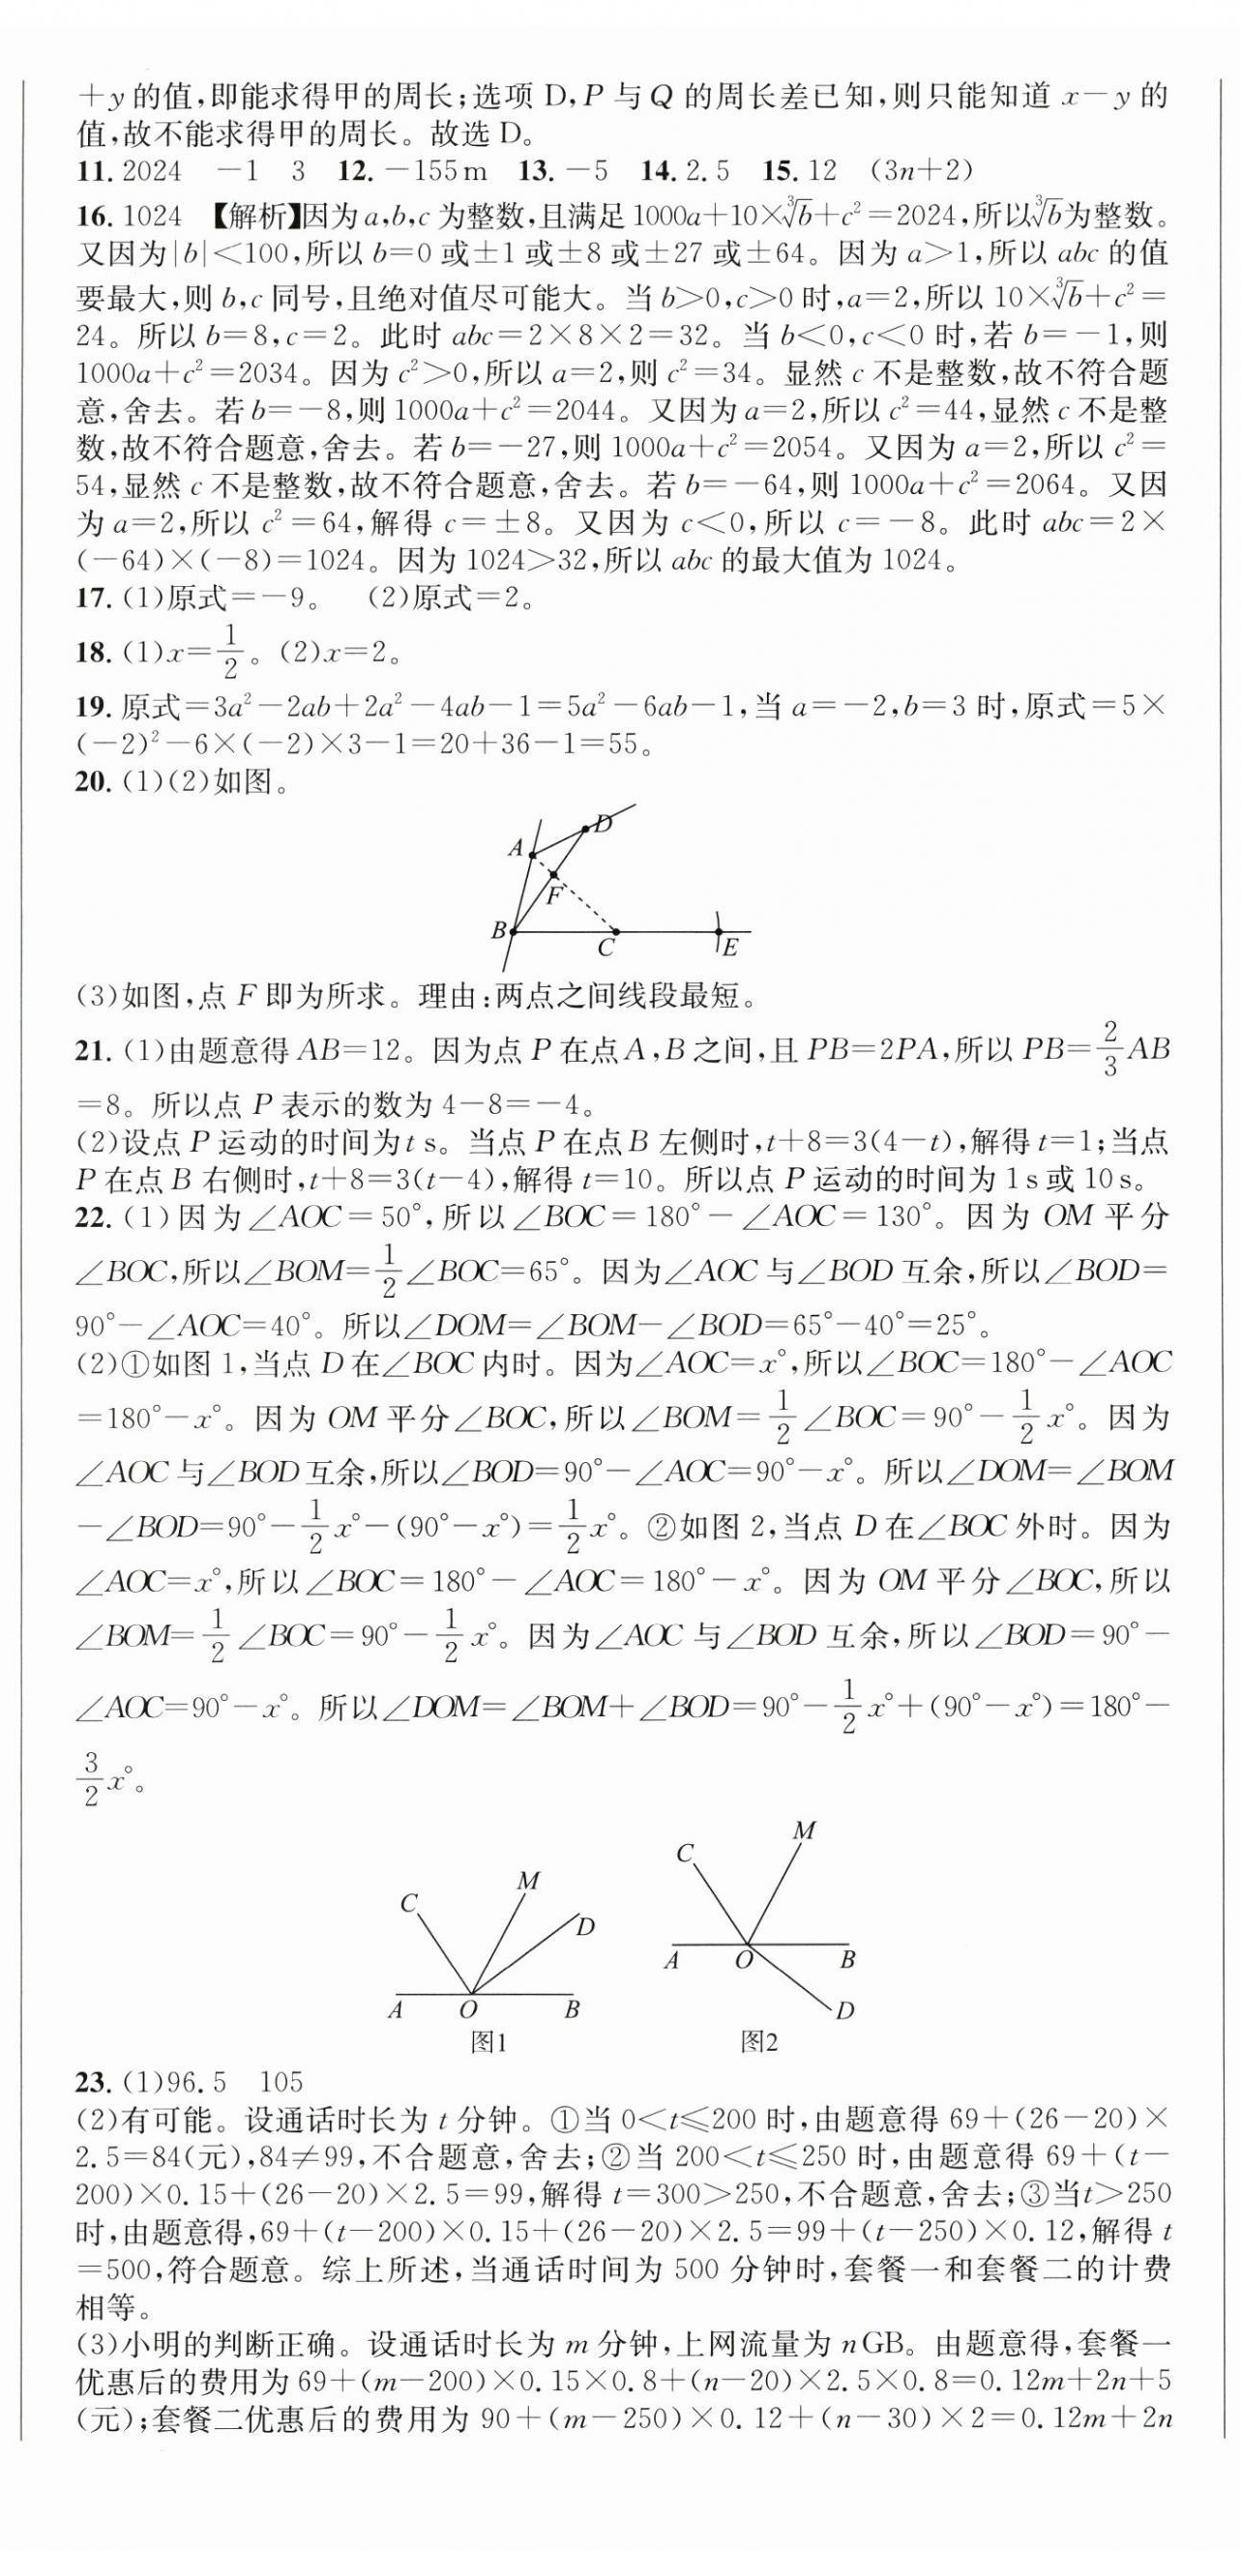 +y的值,即能求得甲的周长;选项 D,P 与 Q 的周长差已知,则只能知道 x-y 的
值,故不能求得甲的周长。故选 D。
11. 2024 -1 3 12. -155 m 13. -5 14. 2.5 15. 12 (3n+2)
16. 1024 【解析】因为 a,b,c 为整数,且满足 1000a+10×∛b+c²=2024,所以∛b为整数。
又因为|b|<100,所以 b=0 或±1 或±8 或±27 或±64。因为 a>1,所以 abc 的值
要最大,则 b,c 同号,且绝对值尽可能大。当 b>0,c>0 时,a=2,所以 10×∛b+c²=
24。所以 b=8,c=2。此时 abc=2×8×2=32。当 b<0,c<0 时,若 b=-1,则
1000a+c²=2034。因为 c²>0,所以 a=2,则 c²=34。显然 c 不是整数,故不符合题
意,舍去。若 b=-8,则 1000a+c²=2044。又因为 a=2,所以 c²=44,显然 c 不是整
数,故不符合题意,舍去。若 b=-27,则 1000a+c²=2054。又因为 a=2,所以 c²=
54,显然 c 不是整数,故不符合题意,舍去。若 b=-64,则 1000a+c²=2064。又因
为 a=2,所以 c²=64,解得 c=±8。又因为 c<0,所以 c=-8。此时 abc=2×
(-64)×(-8)=1024。因为 1024>32,所以 abc 的最大值为 1024。
17. (1)原式=-9。 (2)原式=2。
18. (1)x=1/2。(2)x=2。
19. 原式=3a²-2ab+2a²-4ab-1=5a²-6ab-1,当 a=-2,b=3 时,原式=5×
(-2)²-6×(-2)×3-1=20+36-1=55。
20. (1)(2)如图。
D
A
F
B
C
E
(3)如图,点 F 即为所求。理由:两点之间线段最短。
21. (1)由题意得 AB=12。因为点 P 在点 A,B 之间,且 PB=2PA,所以 PB=2/3AB
=8。所以点 P 表示的数为 4-8=-4。
(2)设点 P 运动的时间为 t s。当点 P 在点 B 左侧时,t+8=3(4-t),解得 t=1;当点
P 在点 B 右侧时,t+8=3(t-4),解得 t=10。所以点 P 运动的时间为 1 s 或 10 s。
22. (1)因为∠AOC=50°,所以∠BOC=180°-∠AOC=130°。因为 OM 平分
∠BOC,所以∠BOM=1/2∠BOC=65°。因为∠AOC 与∠BOD 互余,所以∠BOD=
90°-∠AOC=40°。所以∠DOM=∠BOM-∠BOD=65°-40°=25°。
(2)①如图 1,当点 D 在∠BOC 内时。因为∠AOC=x°,所以∠BOC=180°-∠AOC
=180°-x°。因为 OM 平分∠BOC,所以∠BOM=1/2∠BOC=90°-1/2x°。因为
∠AOC 与∠BOD 互余,所以∠BOD=90°-∠AOC=90°-x°。所以∠DOM=∠BOM
-∠BOD=90°-1/2x°-(90°-x°)=1/2x°。②如图 2,当点 D 在∠BOC 外时。因为
∠AOC=x°,所以∠BOC=180°-∠AOC=180°-x°。因为 OM 平分∠BOC,所以
∠BOM=1/2∠BOC=90°-1/2x°。因为∠AOC 与∠BOD 互余,所以∠BOD=90°-
∠AOC=90°-x°。所以∠DOM=∠BOM+∠BOD=90°-1/2x°+(90°-x°)=180°-
3/2x°。
C
M
D
A
O
B
图1
C
M
A
O
B
D
图2
23. (1)96.5 105
(2)有可能。设通话时长为 t 分钟。①当 0<t≤200 时,由题意得 69+(26-20)×
2.5=84(元),84≠99,不合题意,舍去;②当 200<t≤250 时,由题意得 69+(t-
200)×0.15+(26-20)×2.5=99,解得 t=300>250,不合题意,舍去;③当t>250
时,由题意得,69+(t-200)×0.15+(26-20)×2.5=99+(t-250)×0.12,解得 t
=500,符合题意。综上所述,当通话时间为 500 分钟时,套餐一和套餐二的计费
相等。
(3)小明的判断正确。设通话时长为 m 分钟,上网流量为 n GB。由题意得,套餐一
优惠后的费用为 69+(m-200)×0.15×0.8+(n-20)×2.5×0.8=0.12m+2n+5
(元);套餐二优惠后的费用为 90+(m-250)×0.12+(n-30)×2=0.12m+2n